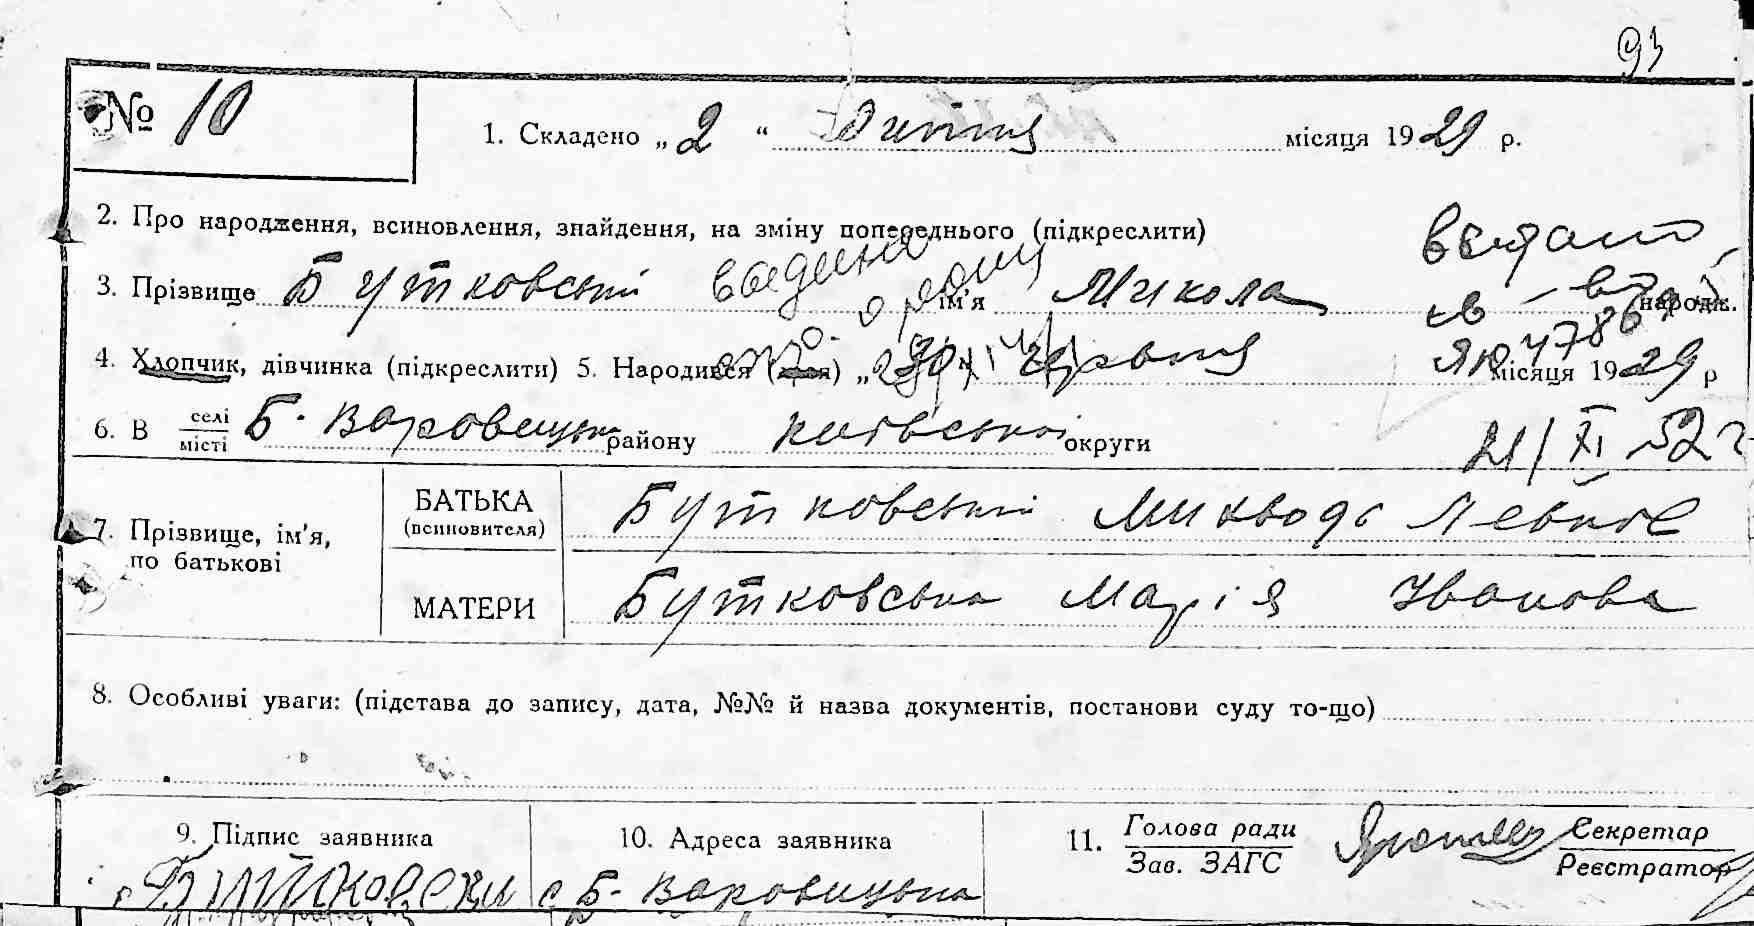 93
№ 10
1. Складено „ 2 “ Липня місяця 1929 р.
2. Про народження, всиновлення, знайдення, на зміну попереднього (підкреслити)
3. Прізвище Бутковський ім'я Микола народж.
4. Хлопчик, дівчинка (підкреслити) 5. Народився (лася) „30“ червня місяця 1929 р
6. В селі місті Б. Варовицьк району Київської округи
21/XI 52 г
7. Прізвище, ім'я, по батькові
БАТЬКА (всиновителя) Бутковський
МАТЕРИ Бутковська Марія Іванова
8. Особливі уваги: (підстава до запису, дата, №№ й назва документів, постанови суду то-що)
9. Підпис заявника
10. Адреса заявника
11. Голова ради Зав. ЗАГС
Секретар Реєстратор
с Б. Варовицьк